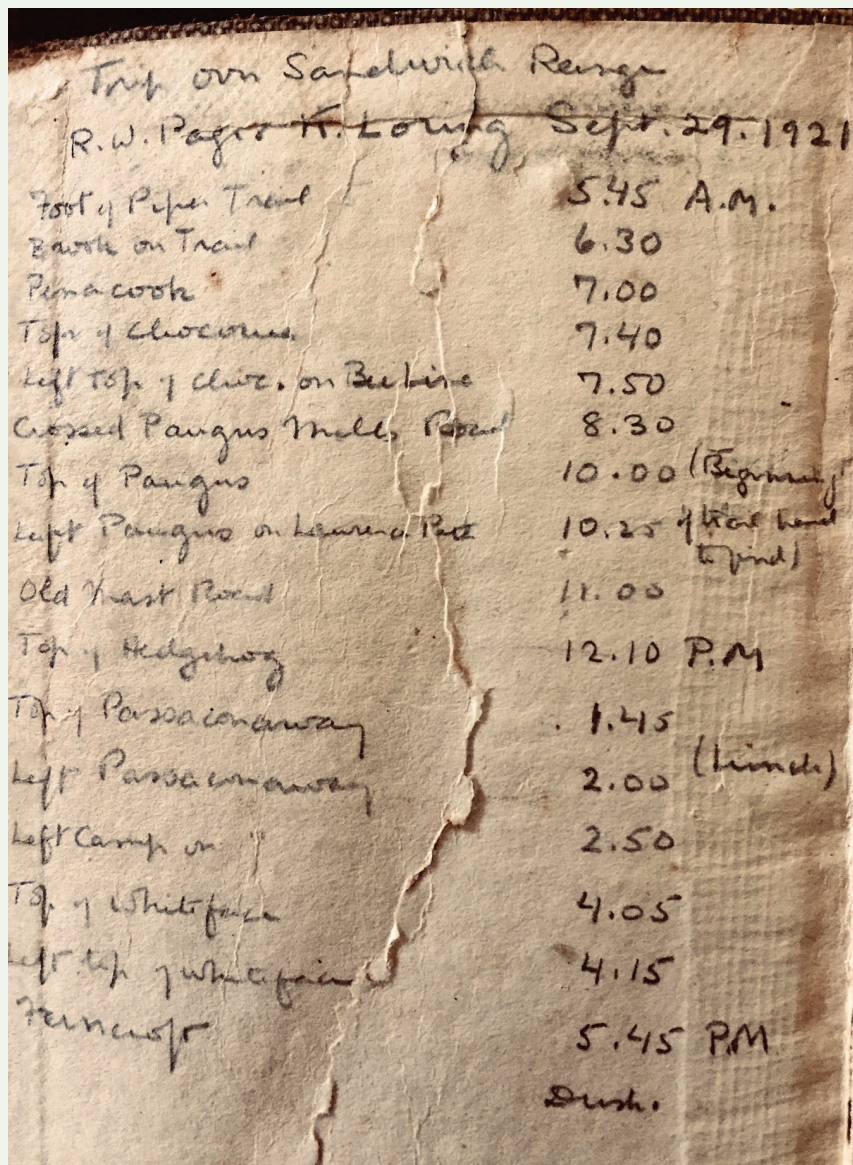 Trip over Sandwich Range
R.W. Page K. Loring Sept. 29. 1921
Foot of Piper Trail 5.45 A.M.
Brook on Trail 6.30
Penacook 7.00
Top of Chocorua 7.40
Left top of choc. on Bee Line 7.50
Crossed Paugus Mills Road 8.30
Top of Paugus 10.00 (Beginning
Left Paugus on Lawrence Path 10.25 of trail hard
to find)
Old Mast Road 11.00
Top of Hedgehog 12.10 P.M
Top of Passaconaway 1.45
Left Passaconaway 2.00 (Lunch)
Left Camp on " 2.50
Top of Whiteface 4.05
Left top of whiteface 4.15
Ferncroft 5.45 P.M
Dusk.